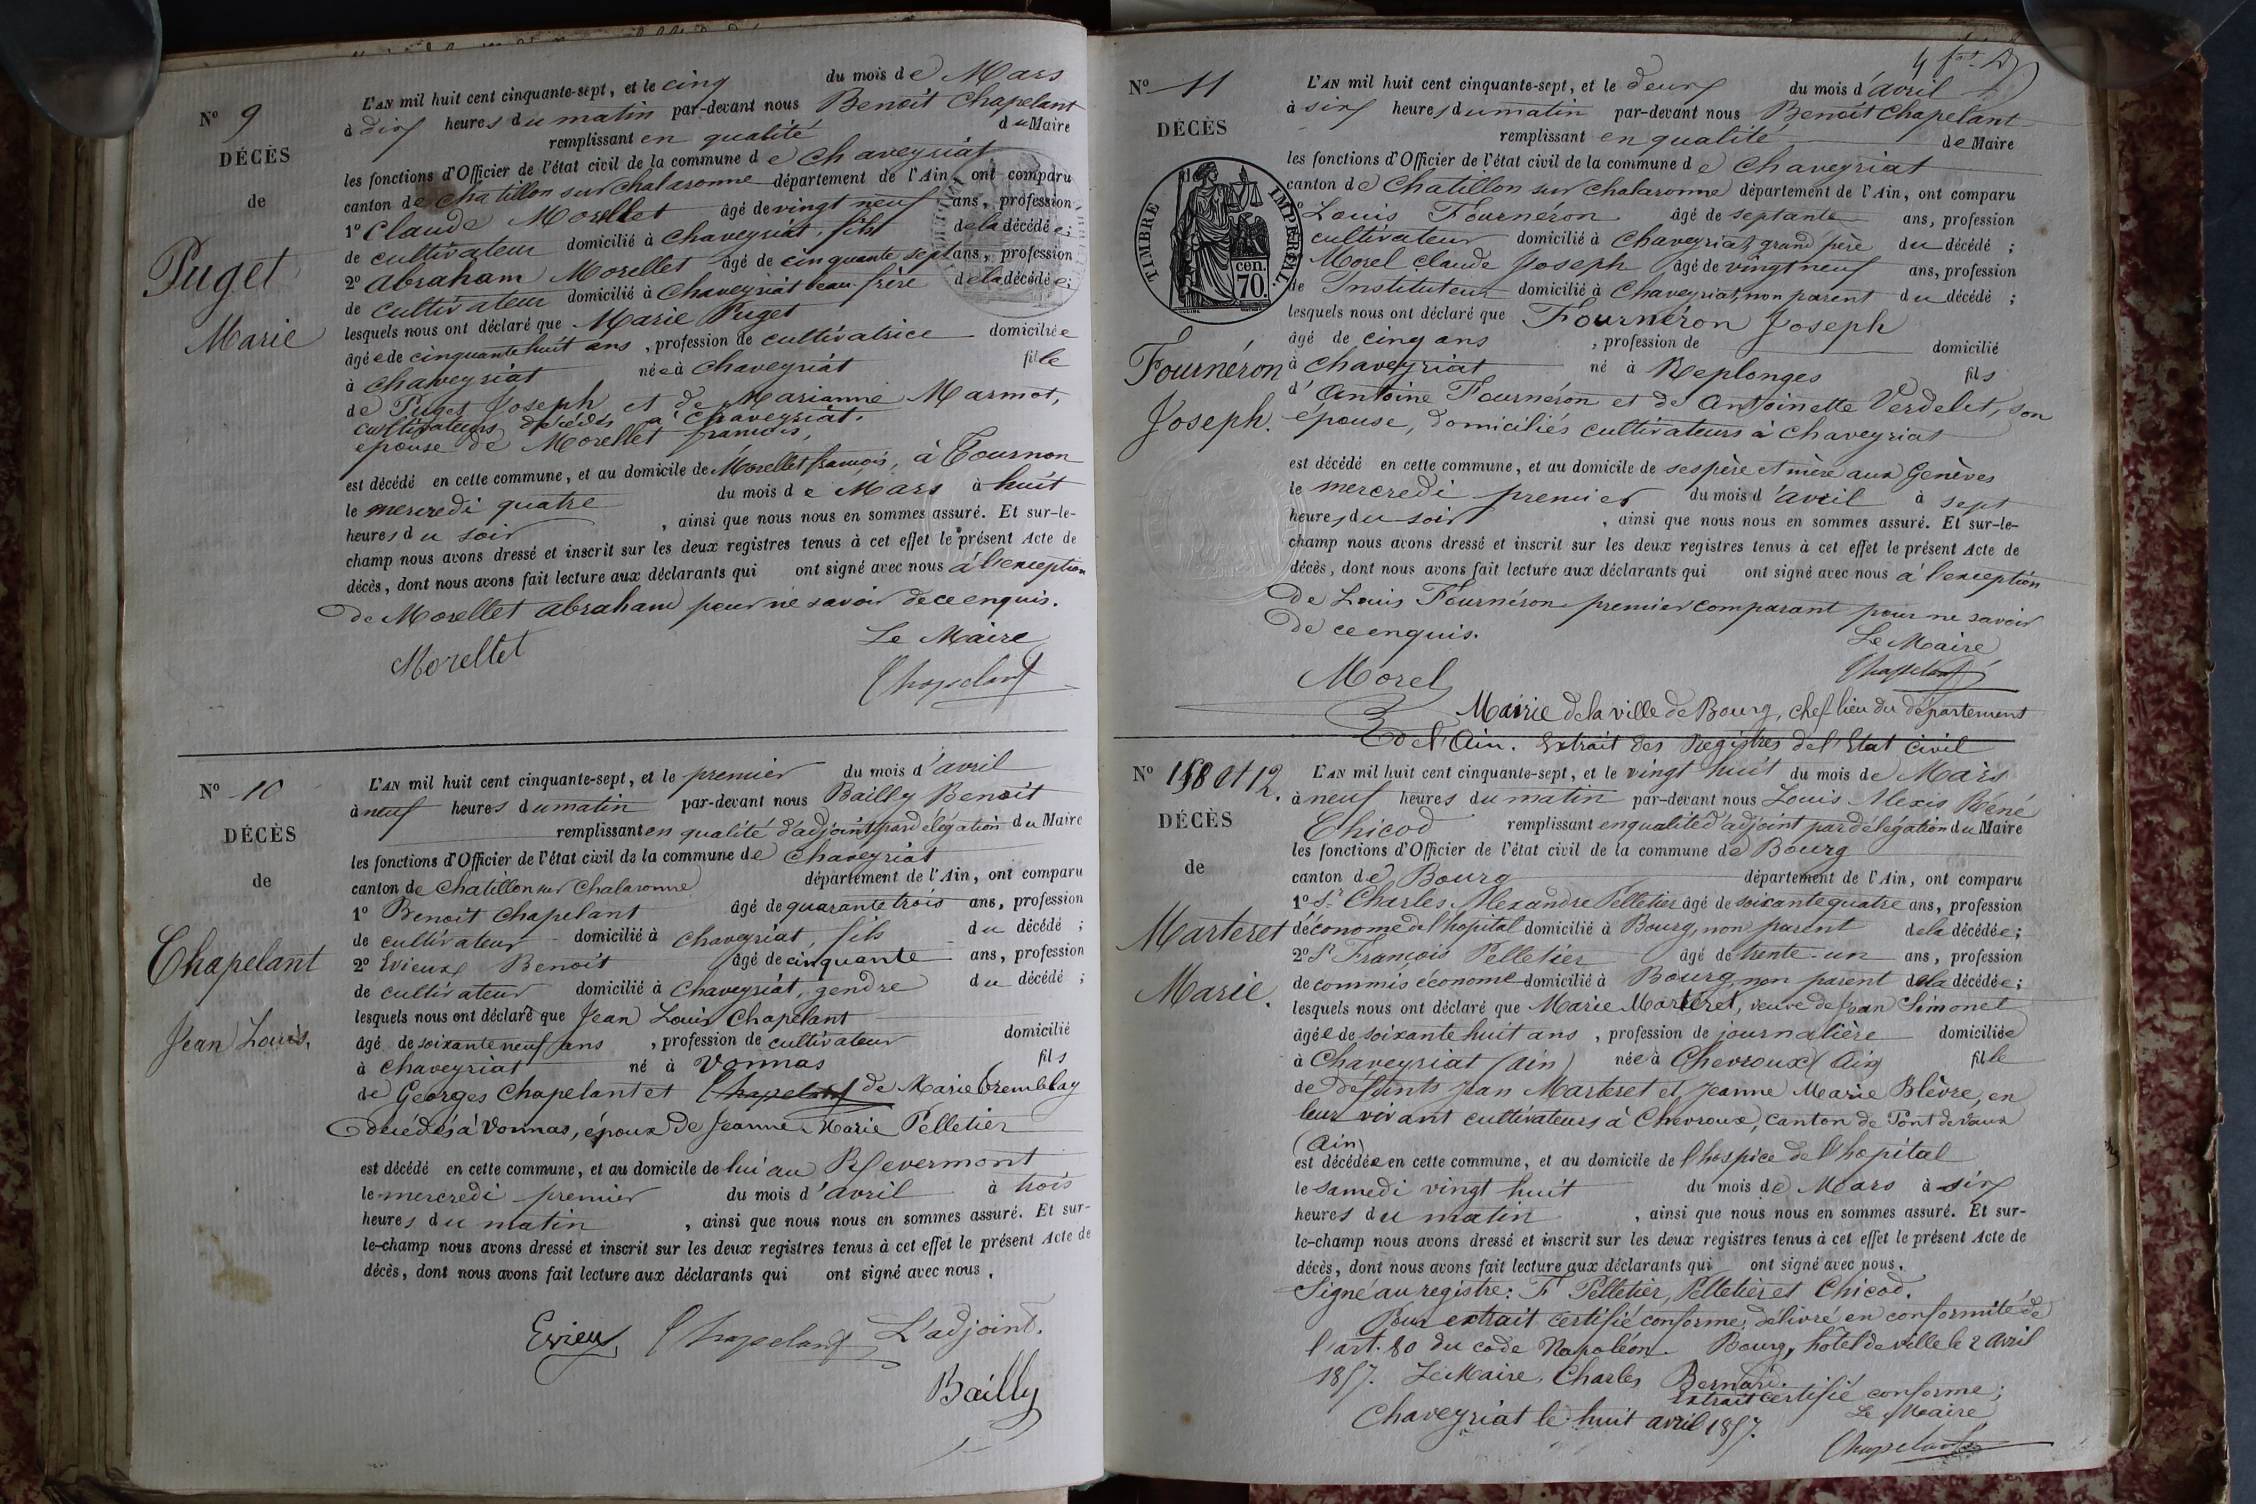 N° 9
DÉCÈS
de
Puget
Marie
L'AN mil huit cent cinquante-sept, et le cinq du mois de Mars
à dix heures du matin par-devant nous Benoit Chapelant
remplissant en qualité du Maire
les fonctions d'Officier de l'état civil de la commune de Chaveyriat
canton de Châtillon sur Chalaronne département de l'Ain, ont comparu
1° Claude Morellet âgé de vingt neuf ans, profession
de cultivateur domicilié à Chaveyriat, fils de la décédée;
2° Abraham Morellet âgé de cinquante sept ans, profession
de cultivateur domicilié à Chaveyriat beau frère de la décédée;
lesquels nous ont déclaré que Marie Puget
âgée de cinquante huit ans, profession de cultivatrice domiciliée
à Chaveyriat née à Chaveyriat fille
de Puget Joseph et de Marianne Marmot,
cultivateurs décédés à Chaveyriat.
épouse de Morellet françois,
est décédé en cette commune, et au domicile de Morellet françois, à Tournon
le mercredi quatre du mois de Mars à huit
heures du soir, ainsi que nous nous en sommes assuré. Et sur-le-
champ nous avons dressé et inscrit sur les deux registres tenus à cet effet le présent Acte de
décès, dont nous avons fait lecture aux déclarants qui ont signé avec nous à l'exception
de Morellet abraham pour ne savoir de ce enquis.
Le Maire
Morellet
Chapelant
N° 10
DÉCÈS
de
Chapelant
Jean Louis,
L'AN mil huit cent cinquante-sept, et le premier du mois d'avril
à neuf heures du matin par-devant nous Bailly Benoit
remplissant en qualité d'adjoint par délégation du Maire
les fonctions d'Officier de l'état civil de la commune de Chaveyriat
canton de Chatillon sur Chalaronne département de l'Ain, ont comparu
1° Benoit Chapelant âgé de quarante trois ans, profession
de cultivateur domicilié à Chaveyriat, fils du décédé;
2° Evieux Benoit âgé de cinquante ans, profession
de cultivateur domicilié à Chaveyriat, gendre du décédé;
lesquels nous ont déclaré que Jean Louis Chapelant
âgé de soixante neuf ans, profession de cultivateur domicilié
à Chaveyriat né à Vonnas fils
de Georges Chapelant et Chapelant de Marie Tremblay
décédés à Vonnas, époux de Jeanne Marie Pelletier
est décédé en cette commune, et au domicile de lui au Revermont
le mercredi premier du mois d'avril à trois
heures du matin, ainsi que nous nous en sommes assuré. Et sur-
le-champ nous avons dressé et inscrit sur les deux registres tenus à cet effet le présent Acte de
décès, dont nous avons fait lecture aux déclarants qui ont signé avec nous.
Evieux Chapelant L'adjoint.
Bailly
N° 11
DÉCÈS
TIMBRE IMPÉRIAL
70 cen.
Fournéron
Joseph.
L'AN mil huit cent cinquante-sept, et le deux du mois d'avril
à six heures du matin par-devant nous Benoit Chapelant
remplissant en qualité de Maire
les fonctions d'Officier de l'état civil de la commune de Chaveyriat
canton de Chatillon sur Chalaronne département de l'Ain, ont comparu
Louis Fournéron âgé de septante ans, profession
cultivateur domicilié à Chaveyriat, grand père du décédé;
Morel Claude Joseph, âgé de vingt neuf ans, profession
de Instituteur domicilié à Chaveyriat, non parent du décédé;
lesquels nous ont déclaré que Fournéron Joseph
âgé de cinq ans, profession de domicilié
à Chaveyriat né à Replonges fils
d'Antoine Fournéron et de Antoinette Verdelet, son
épouse, domiciliés cultivateurs à Chaveyriat
est décédé en cette commune, et au domicile de ses père et mère aux Genèves
le mercredi premier du mois d'avril à sept
heures du soir, ainsi que nous nous en sommes assuré. Et sur-le-
champ nous avons dressé et inscrit sur les deux registres tenus à cet effet le présent Acte de
décès, dont nous avons fait lecture aux déclarants qui ont signé avec nous à l'exception
de Louis Fournéron premier comparant pour ne savoir
de ce enquis.
Le Maire
Morel
Chapelant
Mairie de la ville de Bourg, chef-lieu du département
de l'Ain. Extrait des Registres de l'Etat civil
N° 158 et 12.
DÉCÈS
de
Marteret
Marie.
L'AN mil huit cent cinquante-sept, et le vingt huit du mois de Mars
à neuf heures du matin par-devant nous Louis Alexis Réné
Chicod remplissant en qualité d'adjoint par délégation du Maire
les fonctions d'Officier de l'état civil de la commune de Bourg
canton de Bourg département de l'Ain, ont comparu
1° Sr Charles Alexandre Pelletier âgé de soixante quatre ans, profession
d'économe de l'hopital domicilié à Bourg, non parent de la décédée;
2° Sr François Pelletier âgé de trente-un ans, profession
de commis économe domicilié à Bourg, non parent de la décédée;
lesquels nous ont déclaré que Marie Marteret, veuve de Jean Simonet
âgée de soixante huit ans, profession de journalière domiciliée
à Chaveyriat (Ain) née à Chevroux (Ain) fille
de défunts Jean Marteret et Jeanne Marie Blèvre, en
leur vivant cultivateurs à Chevroux, canton de Pont de Vaux
(Ain)
est décédée en cette commune, et au domicile de l'hospice de l'hopital
le samedi vingt huit du mois de Mars à six
heures du matin, ainsi que nous nous en sommes assuré. Et sur-
le-champ nous avons dressé et inscrit sur les deux registres tenus à cet effet le présent Acte de
décès, dont nous avons fait lecture aux déclarants qui ont signé avec nous.
Signé au registre: F Pelletier, Pelletier et Chicod.
Pour extrait certifié conforme, délivré en conformité de
l'art. 80 du code Napoléon. Bourg, hôtel de ville le 2 avril
1857. Le Maire, Charles Bernard.
Extrait certifié conforme;
Chaveyriat le huit avril 1857.
Le Maire
Chapelant